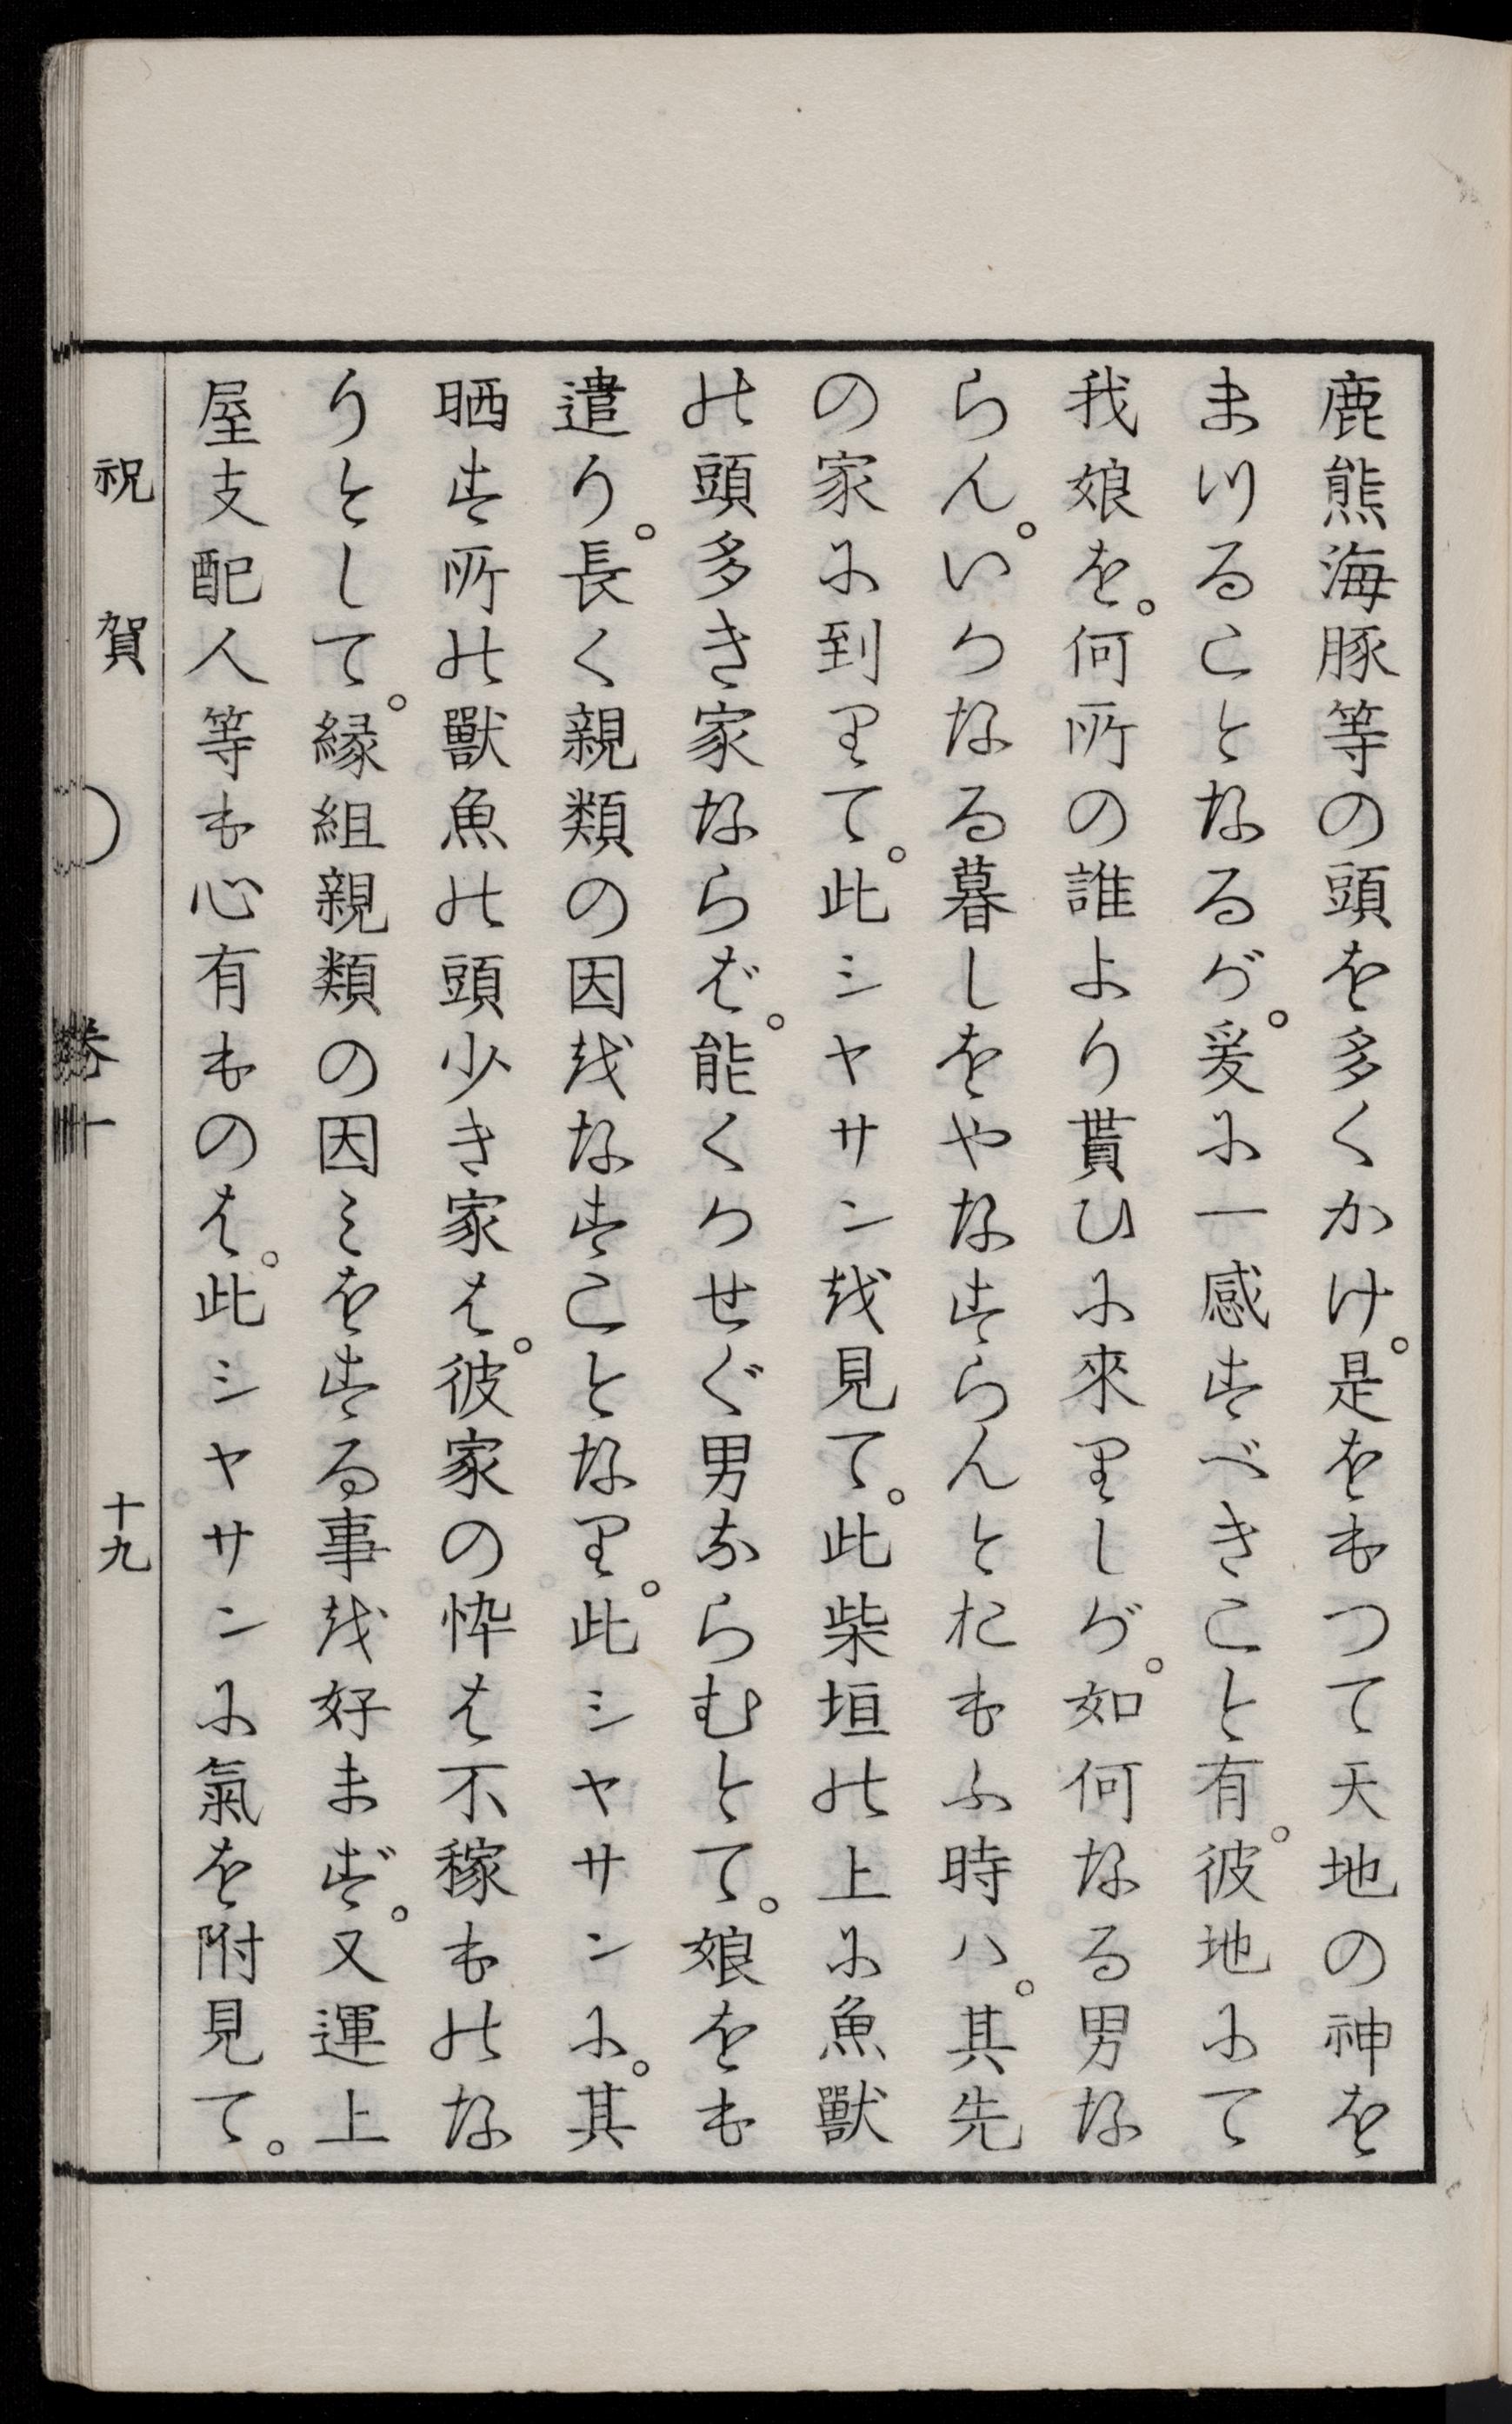 鹿熊海豚等の頭を多くかけ。是をもつて天地の神を
まつることなるが。爰に一感すべきこと有。彼地にて
我娘を。何所の誰より貰ひに來りしが。如何なる男な
らん。いかなる暮しをやなすらんとおもふ時ハ。其先
の家に到りて。此シヤサンを見て。此柴垣の上に魚獸
の頭多き家ならば。能くかせぐ男ならむとて。娘をも
遣り。長く親類の因をなすことなり。此シヤサンに。其
晒す所の獸魚の頭少き家は。彼家の忰は不稼ものな
りとして。縁組親類の因ミをする事を好まず。又運上
屋支配人等も心有ものは。此シヤサンに氣を附見て。
祝賀 卷十 十九